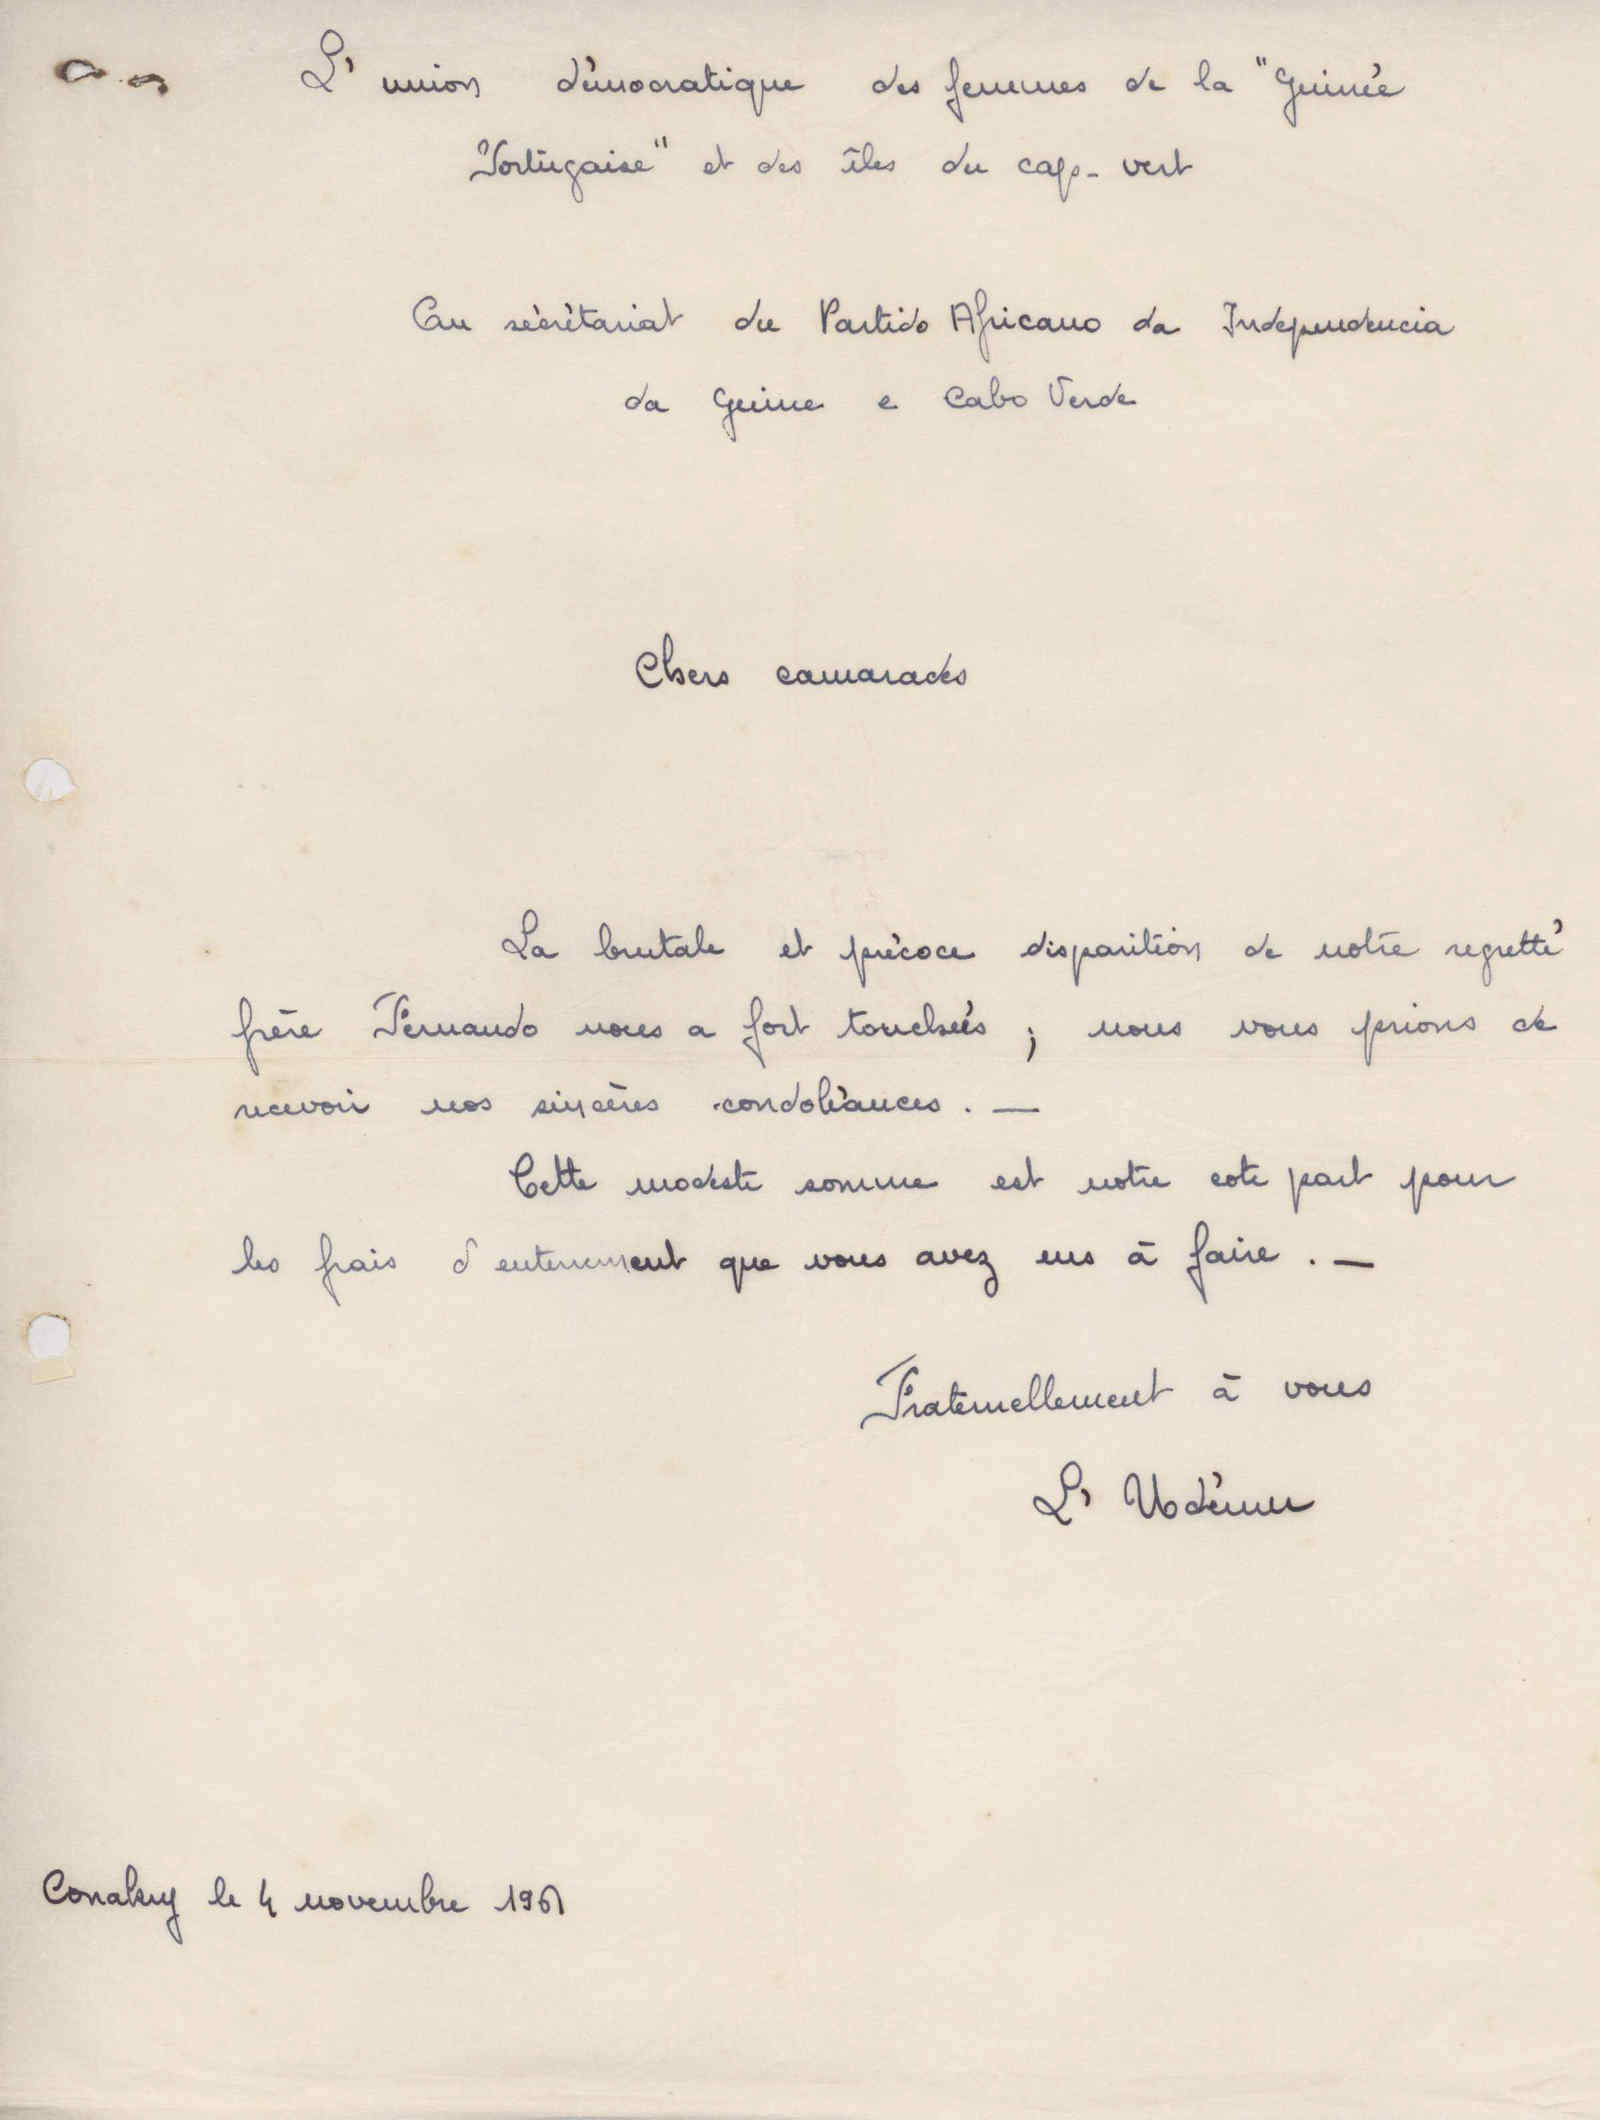 L' union démocratique des femmes de la "Guinée
Portugaise" et des îles du cap-vert
Au sécrétariat du Partido Africano da Independencia
da Guine e Cabo Verde
Chers camarades
La brutale et précoce disparition de notre regretté
frère Fernando nous a fort touchées ; nous vous prions de
recevoir nos sincères condoléances . —
Cette modeste somme est notre cote part pour
les frais d'enterrement que vous avez eus à faire . —
Fraternellement à vous
L' Udému
Conakry le 4 novembre 1961